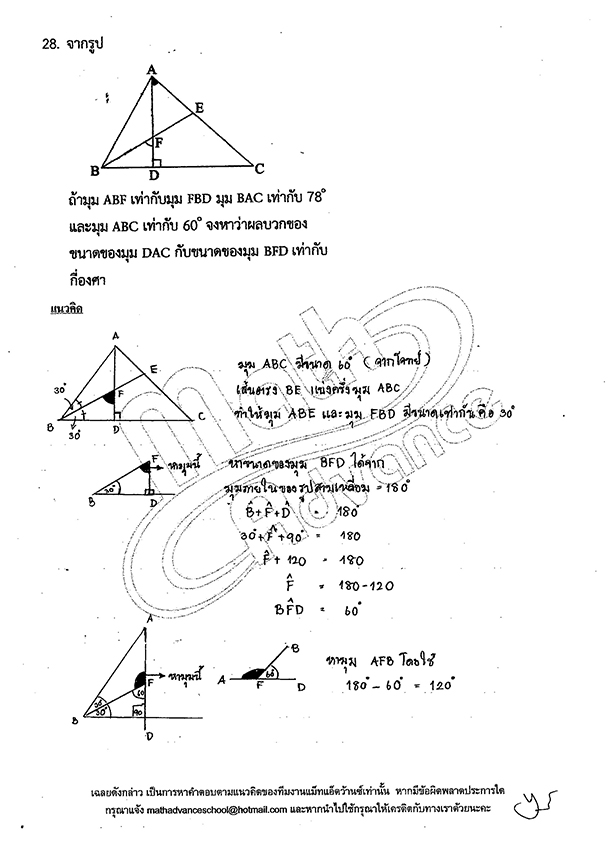 28. จากรูป
A
E
F
B
D
C
ถ้ามุม ABF เท่ากับมุม FBD มุม BAC เท่ากับ 78°
และมุม ABC เท่ากับ 60° จงหาว่าผลบวกของ
ขนาดของมุม DAC กับขนาดของมุม BFD เท่ากับ
กี่องศา
แนวคิด
A
E
30°
F
B
D
C
30°
มุม ABC มีขนาด 60° (จากโจทย์)
เส้นตรง BE แบ่งครึ่งมุม ABC
ทำให้มุม ABE และมุม FBD มีขนาดเท่ากัน คือ 30°
F
หามุมนี้
30°
B
D
หาขนาดของมุม BFD ได้จาก
มุมภายในของรูปสามเหลี่ยม = 180°
B̂+F̂+D̂ = 180°
30°+F̂+90° = 180
F̂+120 = 180
F̂ = 180-120
BF̂D = 60°
A
F
หามุมนี้
60
30°
30°
90
B
D
B
60°
A
F
D
หามุม AFB โดยใช้
180°-60° = 120°
เฉลยดังกล่าว เป็นการหาคำตอบตามแนวคิดของทีมงานแม็ทแอ็ดว้านซ์เท่านั้น หากมีข้อผิดพลาดประการใด
กรุณาแจ้ง mathadvanceschool@hotmail.com และหากนำไปใช้กรุณาให้เครดิตกับทางเราด้วยนะคะ
Math
Advance